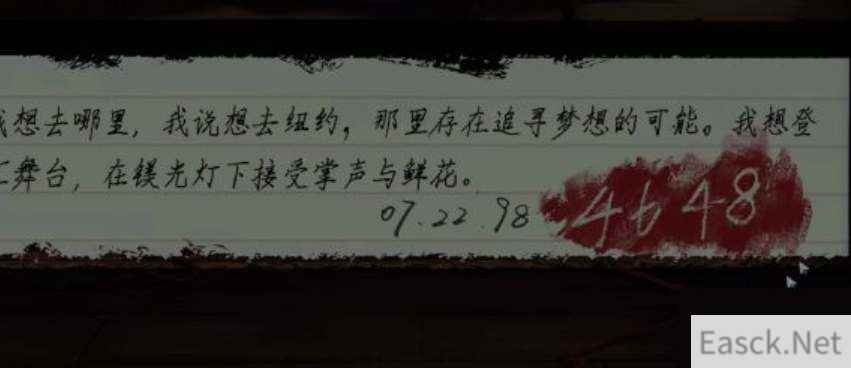 想去哪里，我说想去纽约，那里存在追寻梦想的可能。我想登
舞台，在镁光灯下接受掌声与鲜花。
07.22.98 4648
Easck.Net